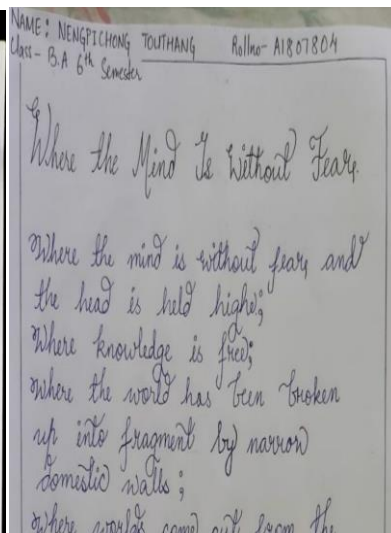 NAME: NENGPICHONG TOUTHANG Rollno- A1807804
Class - B.A 6th Semester
Where the Mind Is Without Fear.
Where the mind is without fear, and
the head is held highe;
Where knowledge is free;
Where the world has been broken
up into fragment by narrow
domestic walls;
Where words come out from the